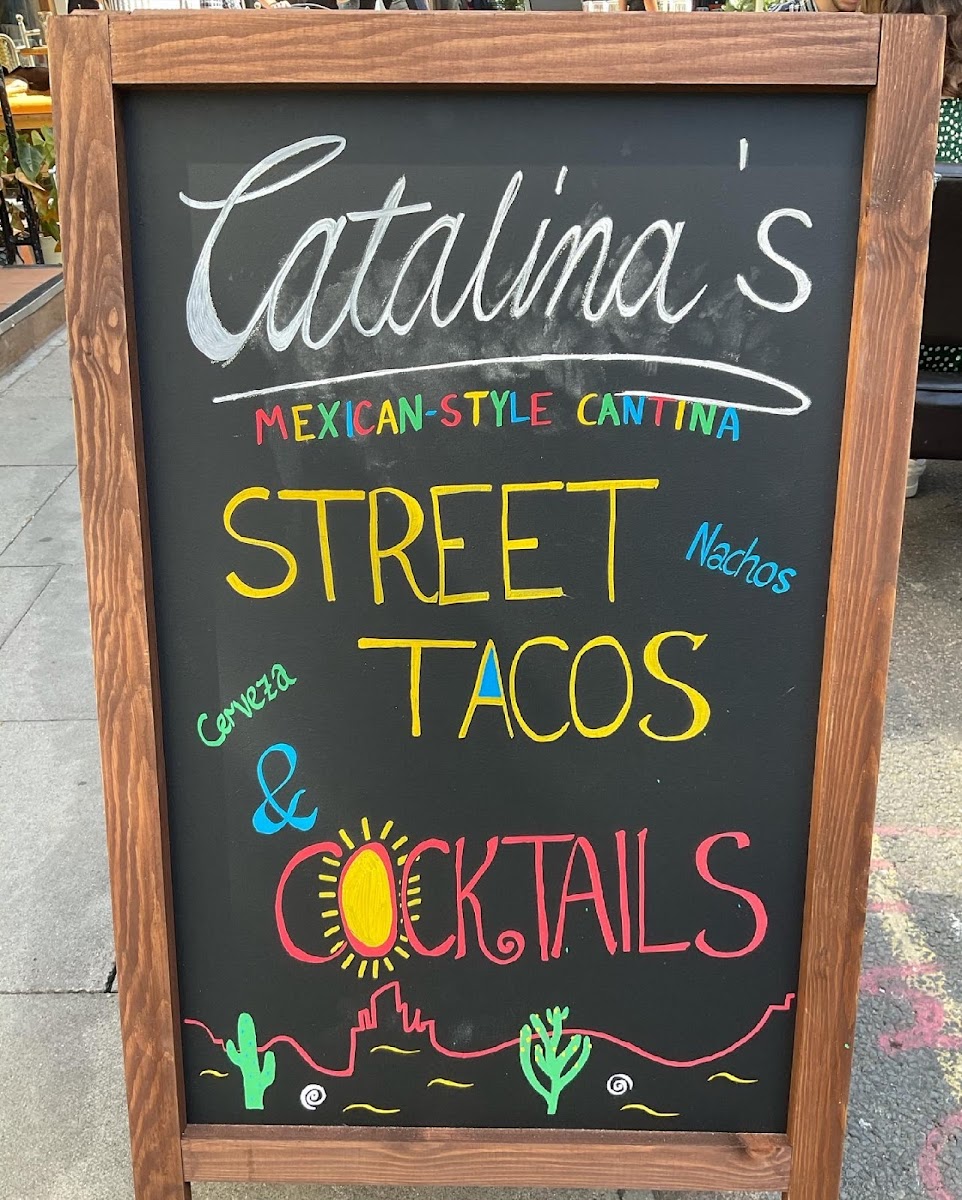 Catalina's
MEXICAN-STYLE CANTINA
STREET
Nachos
TACOS
Cerveza
&
COCKTAILS